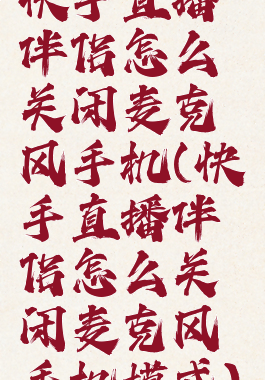 快手直播
伴侣怎么
关闭麦克
风手机(快
手直播伴
侣怎么关
闭麦克风
手机模式)